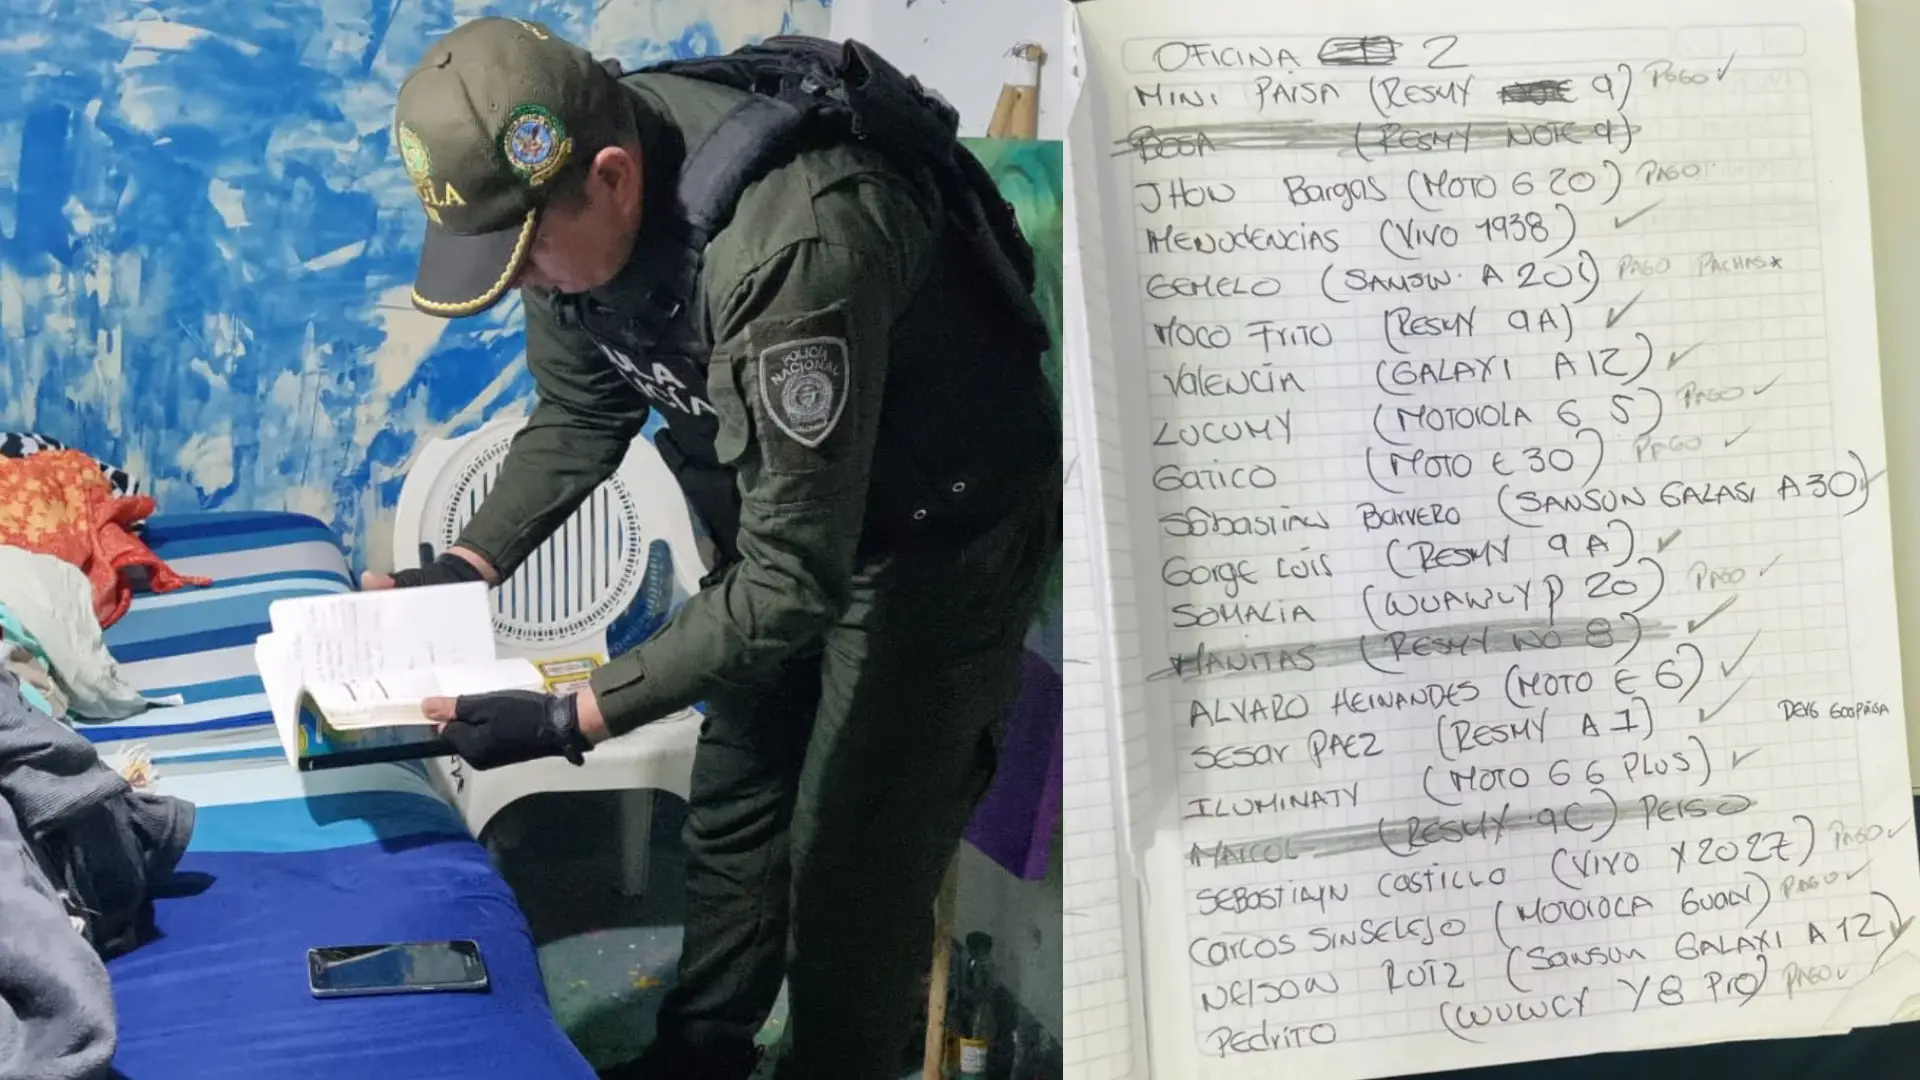 ULA
POLICÍA
NACIONAL
ULA
ICÍA
OFICINA 2
MINI PAISA (RESMY 9) PAGO ✓
BOSA (RESMY NOTE 9)
JHON Bargas (MOTO G 20) PAGO
MENUDENCIAS (VIVO 1938) ✓
GEMELO (SANSUN. A 20S) PAGO PACHAS*
MOCO FRITO (RESMY 9A) ✓
ValENCIA (GALAXI A12) ✓
LUCUMY (MOTOROLA G 5) PAGO ✓
GATICO (MOTO E 30) PAGO ✓
SEbASTIAN BArrERO (SANSUN GALASI A30) ✓
GOrGE LUIS (RESMY 9A) ✓
SOMALIA (WUAWUY P 20) PAGO ✓
MANITAS (RESMY NO 8) ✓
ALVARO HERNANDES (MOTO E 6) ✓
SESAr PAEZ (RESMY A 1) ✓
ILUMINATY (MOTO G 6 PLUS) ✓
(RESMY 9C) PERSO
SEBASTIAYN CASTILLO (VIVO Y2027) PAGO ✓
CArLOS SINSELEJO (MOTOROLA GUAN) PAGO ✓
NELSON RUIZ (SANSUN GALAXI A 12) ✓
PEdrITO (WUWCY Y8 PrO) PAGO ✓